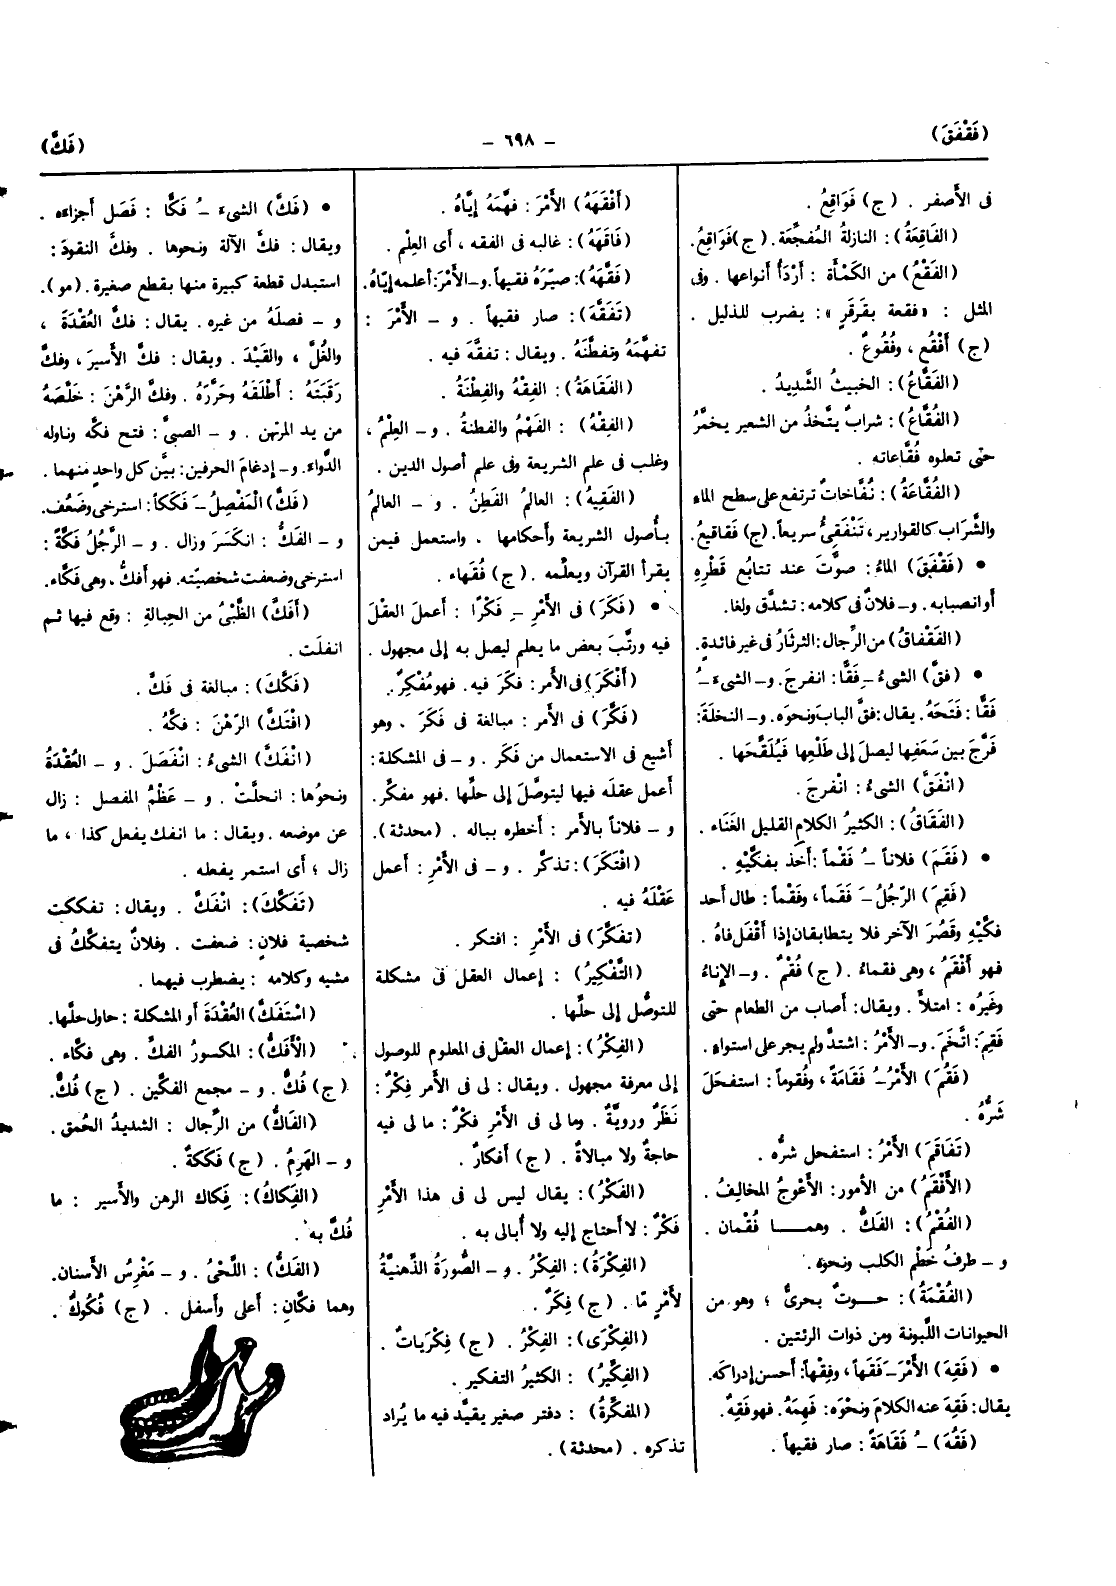 (فَقْفَقَ)
– ٦٩٨ –
(فَكَّ)
فى الأَصفر . (ج) فَوَاقِعُ .
(الفَاقِعَةُ) : النازلةُ المُفجِّعَة . (ج) فَوَاقِعُ.
(الفَقْعُ) من الكَمْأَة : أَرْدَأُ أَنواعها . وفى
المثل : «فقعة بقَرقَرٍ» : يضرب للذليل .
(ج) أَفْقُع ، وفُقُوعٌ .
(الفَقَّاعُ) : الخبيثُ الشَّدِيدُ .
(الفُقَّاعُ) : شرابٌ يتَّخذُ من الشعير يخمَّرُ
حتى تعلوه فُقَّاعاته .
(الفُقَّاعَةُ) : نُفَّاخاتٌ ترتفع على سطح الماء
والشَّرَاب كالقوارير ، تَنْفَقِىُّ سريعاً. (ج) فَقاقيعُ.
• (فَقْفَقَ) الماءُ : صوَّتَ عند تتابُع قَطْرِهِ
أَو انصبابه . و– فلانٌ فى كلامه : تشدَّق ولغا.
(الفَقْفاقُ) من الرِّجال : الثرثارُ فى غير فائدةٍ.
• (فقَّ) الشىءُ –ِ فَقًّا : انفرجَ . و– الشىءَ –ُ
فَقًّا : فَتَحَهُ. يقال : فقَّ البابَ ونحوَه. و– النخلَةَ :
فَرَّجَ بين سَعَفِها ليصلَ إلى طَلْعِها فَيُلَقِّحَها .
(انْفَقَّ) الشىءُ : انْفرجَ .
(الفَقَاقُ) : الكثيرُ الكلامِ القليل الغَنَاء .
• (فَقَمَ) فلاناً –ُ فَقْماً : أَخَذ بفكَّيْهِ .
(فَقِمَ) الرّجُلُ –َ فَقَماً ، وفَقْماً : طال أَحد
فكَّيْهِ وقَصُرَ الآخر فلا يتطابقان إذا أَقْفَل فاهُ .
فهو أَفْقَمُ ، وهى فقماءُ . (ج) فُقْمٌ . و– الإناءُ
وغيرُه : امتلأَ . ويقال : أَصاب من الطعام حتى
فَقِمَ : اتَّخَمَ . و– الأَمْرُ : اشتدَّ ولم يجر على استواءٍ .
(فَقُمَ) الأَمْرُ –ُ فَقَامَةً ، وفُقُوماً : استفحلَ
شَرُّهُ .
(تَفَاقَمَ) الأَمْرُ : استفحل شرُّه .
(الأَفْقَمُ) من الأمور : الأَعْوجُ المخاليفُ .
(الفُقْمُ) : الفَكُّ . وهمـــا فُقْمان .
و– طرفُ خَطْمِ الكلب ونحوه .
(الفُقْمَةُ) : حــوتٌ بحرىٌّ ؛ وهو من
الحيوانات اللَّبونة ومن ذوات الرئتين .
• (فَقِهَ) الأَمْرَ –َ فَقَهاً ، وفِقْهاً : أَحسن إدراكَه.
يقال : فَقِهَ عنه الكلامَ ونحْوَه : فَهِمَهُ. فهو فَقِهٌ.
(فَقُهَ) –ُ فَقَاهَةً : صار فقيهاً .
(أَفْقَهَهُ) الأَمْرَ : فهَّمَهُ إيَّاهُ .
(فَاقَهَهُ) : غالبه فى الفقه ، أَى العِلْم .
(فَقَّهَهُ) : صيّرَهُ فقيهاً. و– الأَمْرَ : أَعلمه إيّاهُ.
(تَفَقَّهَ) : صار فقيهاً . و– الأَمْرَ :
تفهَّمَهُ وتفطَّنَهُ . ويقال : تفقَّهَ فيه .
(الفَقَاهَةُ) : الفِقْهُ والفِطْنَةُ .
(الفِقْهُ) : الفَهْمُ والفطنةُ . و– العِلْمُ ،
وغلب فى علم الشريعة وفى علم أُصول الدين .
(الفَقِيهُ) : العالمُ الفَطِنُ . و– العالمُ
بأُصول الشريعة وأَحكامها ، واستعمل فيمن
يقرأُ القرآن ويعلِّمه . (ج) فُقَهاء .
• (فَكَرَ) فى الأَمْرِ –ِ فَكْرًا : أَعملَ العقْلَ
فيه ورتَّبَ بعض ما يعلم ليصل به إلى مجهول .
(أَفْكَرَ) فى الأَمر : فكَرَ فيه. فهو مُفْكِرٌ .
(فَكَّرَ) فى الأَمر : مبالغة فى فَكَرَ . وهو
أَشيع فى الاستعمال من فَكَر . و– فى المشكلة :
أَعمل عقلَه فيها ليتوصَّلَ إلى حلِّها. فهو مفكِّر.
و– فلاناً بالأَمر : أَخطره بباله . (محدثة).
(افْتَكَرَ) : تذكَّر . و– فى الأَمْرِ : أَعمل
عَقْلَهُ فيه .
(تفَكَّرَ) فى الأَمْرِ : افتكر .
(التَّفْكِيرُ) : إعمال العقل فى مشكلة
للتوصُّل إلى حلِّها .
(الفِكْرُ) : إعمال العقْل فى المعلوم للوصول
إلى معرفة مجهول . ويقال : لى فى الأَمر فِكْرٌ :
نَظَرٌ ورويَّةٌ . وما لى فى الأَمْرِ فكْرٌ : ما لى فيه
حاجةٌ ولا مبالاةٌ . (ج) أَفكارٌ .
(الفَكْرُ) : يقال ليس لى فى هذا الأَمْرِ
فَكْرٌ : لا أَحتاج إليه ولا أُبالى به .
(الفِكْرَةُ) : الفِكْرُ . و– الصُّورَةُ الذِّهنيَّةُ
لأَمْرٍ مّا . (ج) فِكَرٌ .
(الفِكْرَى) : الفِكْرُ . (ج) فِكْرَياتٌ .
(الفِكِّيرُ) : الكثيرُ التفكير .
(المفَكِّرَةُ) : دفتر صغير يقيَّد فيه ما يُراد
تذكره . (محدثة) .
• (فَكَّ) الشىءَ –ُ فَكًّا : فَصَل أَجزاءَه .
ويقال : فكَّ الآلة ونحوها . وفكَّ النقودَ :
استبدل قطعة كبيرة منها بقطع صغيرة. (مو).
و– فصلَهُ من غيره. يقال : فكَّ العُقْدَةَ ،
والغُلَّ ، والقَيْدَ . ويقال : فكَّ الأَسيرَ ، وفكَّ
رَقَبَتَهُ : أَطْلَقَهُ وحَرَّرَهُ . وفكَّ الرَّهْنَ : خَلَّصَهُ
من يد المرتهن . و– الصبىَّ : فتح فكَّه وناوله
الدَّواءَ. و– إدغامَ الحرفين : بيَّن كل واحدٍ منهما .
(فَكَّ) الْمَفْصِلُ –َ فَكَكاً : استرخى وضَعُف.
و– الفَكُّ : انكَسَرَ وزال . و– الرَّجُلُ فَكَّةً :
استرخى وضعفت شخصيّته. فهو أَفكُّ ، وهى فَكَّاء.
(أَفَكَّ) الظَّبْىُ من الحِبالةِ : وقع فيها ثم
انفلَت .
(فَكَّكَ) : مبالغة فى فَكَّ .
(افْتَكَّ) الرّهْنَ : فكَّهُ .
(انْفَكَّ) الشىءُ : انْفَصَلَ . و– العُقْدَةُ
ونحوُها : انحلَّتْ . و– عَظْمُ المفصل : زال
عن موضعه . ويقال : ما انفك يفعل كذا ، ما
زال ؛ أَى استمر يفعله .
(تَفَكَّكَ) : انْفَكَّ . ويقال : تفككت
شخصية فلان : ضعفت . وفلانٌ يتفكَّكُ فى
مشيه وكلامه : يضطرب فيهما .
(اسْتَفَكَّ) العُقْدَةَ أَو المشكلة : حاول حلَّها.
(الأَفَكُّ) : المكسورُ الفكِّ . وهى فكَّاء .
(ج) فُكٌّ . و– مجمع الفكَّين . (ج) فُكٌّ.
(الفَاكُّ) من الرِّجال : الشديدُ الحُمق .
و– الهَرِمُ . (ج) فَكَكةٌ .
(الفِكاكُ) : فِكاك الرهن والأَسير : ما
فُكَّ به .
(الفَكُّ) : اللَّحْىُ . و– مَغْرِسُ الأَسنان.
وهما فكَّانِ : أَعلى وأَسفل . (ج) فُكُوكٌ .